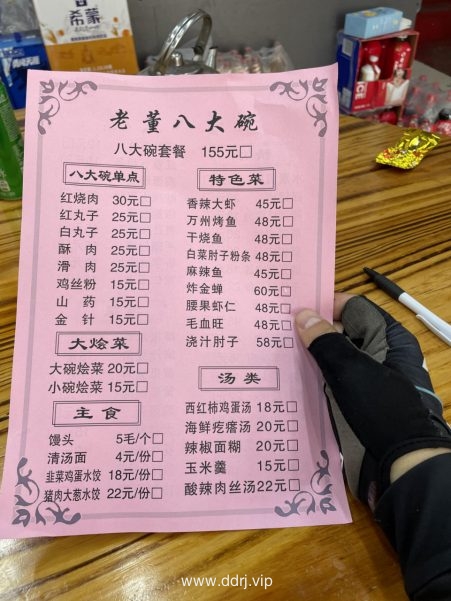 希蒙
老董八大碗
八大碗套餐 155元□
八大碗单点
红烧肉 30元□
红丸子 25元□
白丸子 25元□
酥肉 25元□
滑肉 25元□
鸡丝粉 15元□
山药 15元□
金针 15元□
大烩菜
大碗烩菜 20元□
小碗烩菜 15元□
主食
馒头 5毛/个□
清汤面 4元/份□
韭菜鸡蛋水饺 18元/份□
猪肉大葱水饺 22元/份□
特色菜
香辣大虾 45元□
万州烤鱼 48元□
干烧鱼 48元□
白菜肘子粉条 48元□
麻辣鱼 45元□
炸金蝉 60元□
腰果虾仁 48元□
毛血旺 48元□
浇汁肘子 58元□
汤类
西红柿鸡蛋汤 18元□
海鲜疙瘩汤 20元□
辣椒面糊 20元□
玉米羹 15元□
酸辣肉丝汤 22元□
www.ddrj.vip